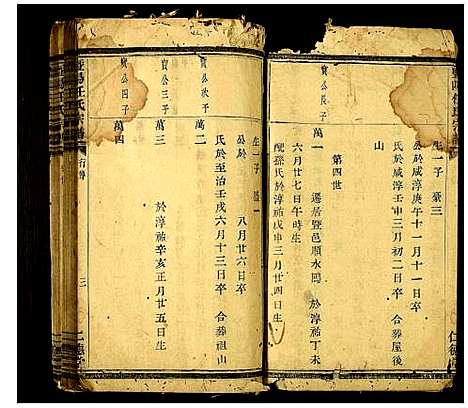 生一子 豪三
公於咸淳庚午十一月十一日卒
氏於咸淳壬申三月初二日卒 合葬屋後
山
第四世
寶公長子
萬一 遷居暨邑順水同 於淳祐丁未
六月廿七日午時生
配孫氏於淳祐戊申三月廿四日生
仁德堂
生一子 豪一
公於 八月廿六日卒
氏於至治壬戌六月十三日卒 合葬祖山
寶公次子
萬二
寶公三子
萬三 於淳祐辛亥正月廿五日生
寶公四子
萬四
行傳
三
仁德堂